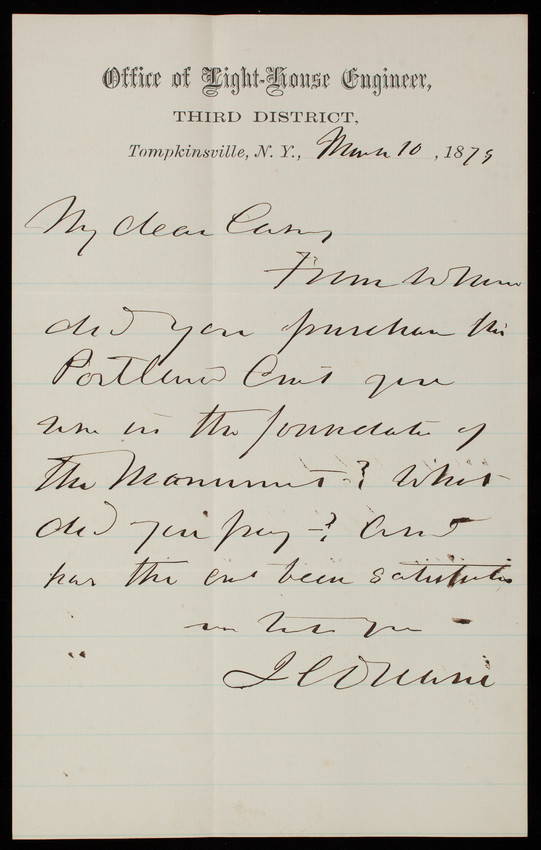 Office of Light-House Engineer,
THIRD DISTRICT,
Tompkinsville, N. Y., March 10, 1879
My dear Casey
From whom
did you purchase the
Portland Cmt you
use in the foundation of
the Monument? What
did you pay? And
has the cmt been satisfactory
yr
J C Duane